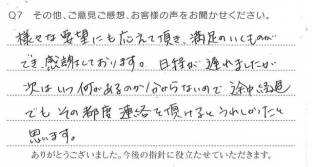 Q7 その他、ご意見ご感想、お客様の声をお聞かせください。
様々な要望にも応えて頂き、満足のいくものが
でき、感謝しております。日程が遅れましたが
次はいつ何があるのか分からないので、途中経過
でも その都度 連絡を頂けるとうれしかったと
思います。
ありがとうございました。今後の指針に役立たせていただきます。